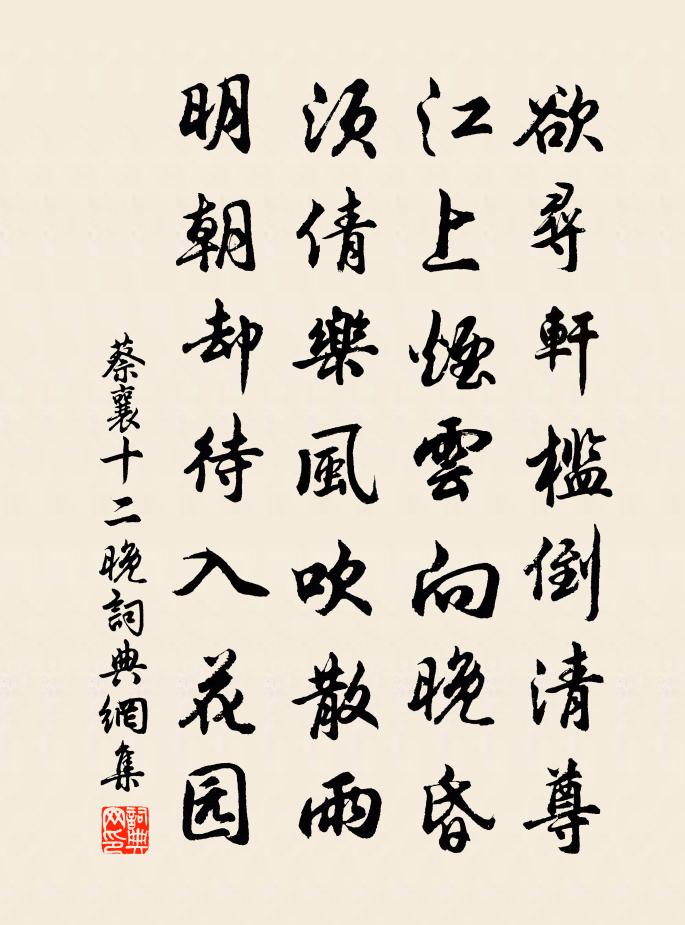 欲尋軒檻倒清尊
江上煙雲向晚昏
須倩樂風吹散雨
明朝却待入花园
蔡襄十二晚詞典網集
詞典網印